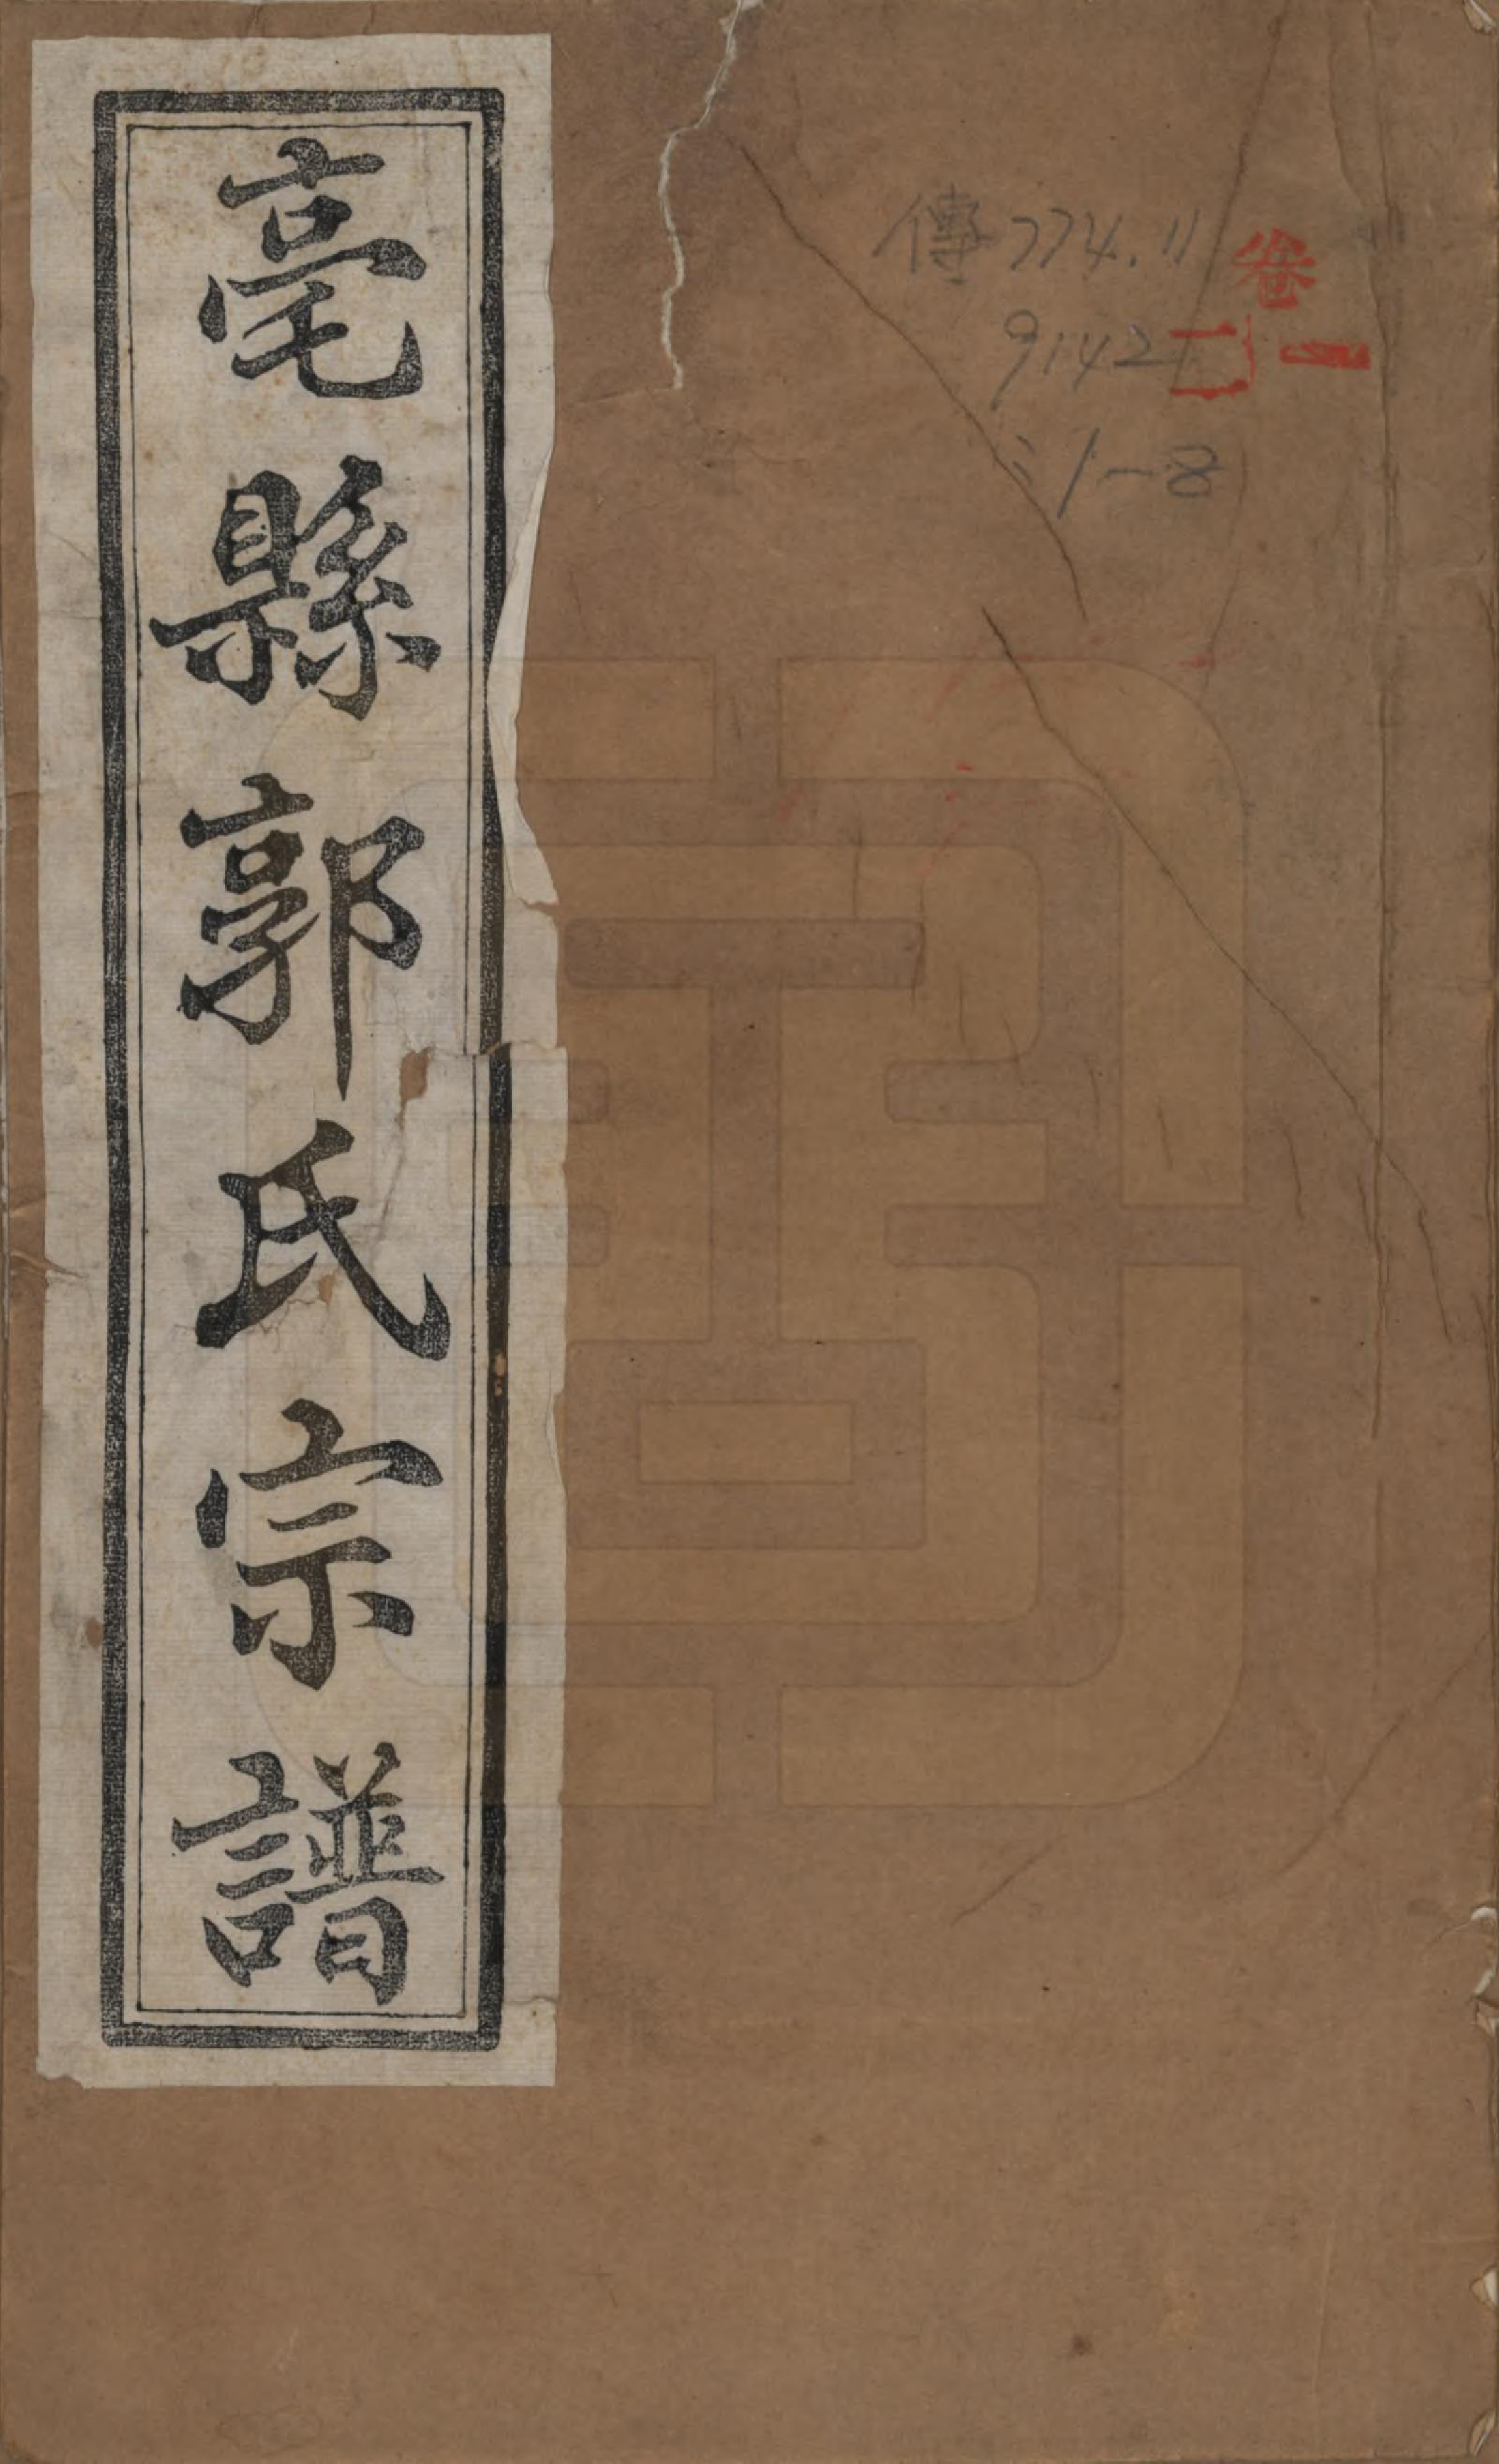 亳縣郭氏宗譜
卷一
二
傳774.11
9142
:1-8